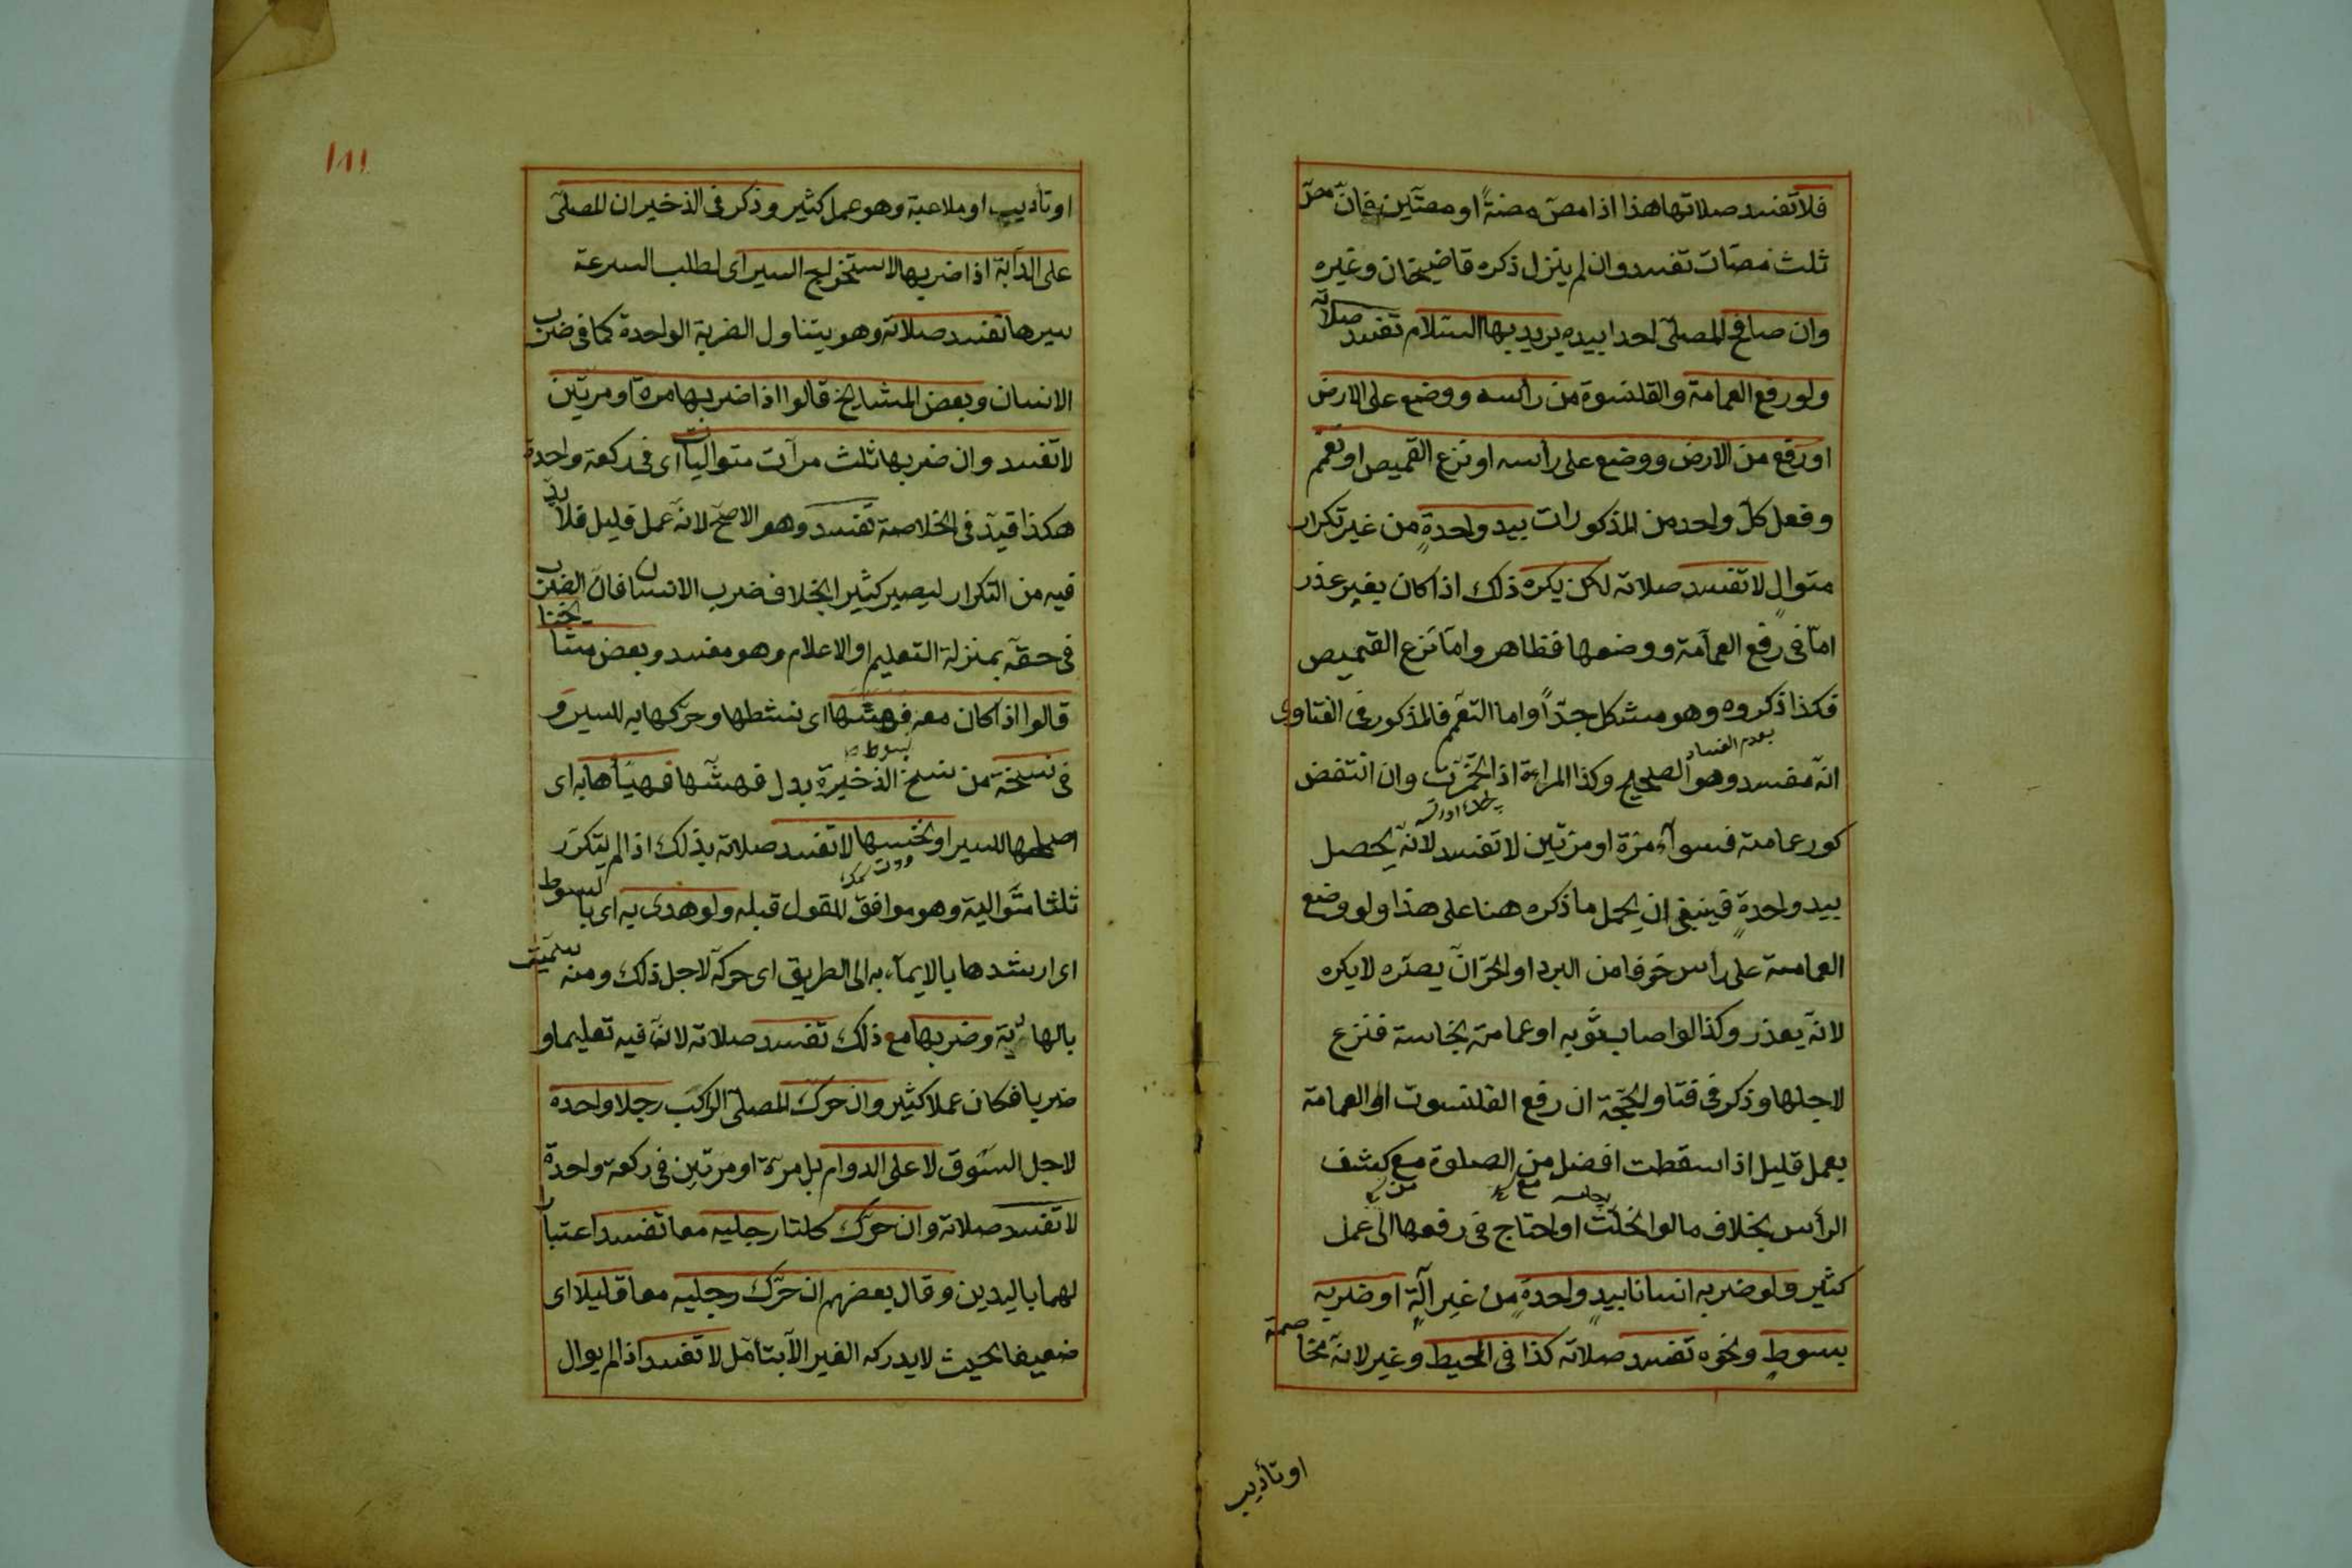 فلا تفسد صلاتها هذا اذا مصّ مصّةً او مصّتين فان مصّ
ثلث مصّات تفسد وان لم ينزل ذكره قاضيخان وغيره
وان صافح المصلّى احدا بيده يريد بها السلام تفسد صلاته
ولو رفع العمامة والقلنسوة من رأسه ووضع على الارض
او رفع من الارض ووضع على رأسه او نزع القميص او تعمّم
وفعل كلّ واحد من المذكورات بيد واحدةٍ من غير تكرار
متوالٍ لا تفسد صلاته لكن يكره ذلك اذا كان بغير عذر
امّا فى رفع العمامة ووضعها فظاهر وامّا نزع القميص
فكذا ذكروه وهو مشكل جدّاً واما التعمّم فالمذكور فى الفتاوى
بعدم الفساد
انّه مفسد وهو الصحيح وكذا المراءة اذا تخمّرت وان انتقض
كور عمامته فسوّاه مرّة او مرّتين لا تفسد لانّه يحصل
بيد واحدةٍ فينبغى ان يحمل ما ذكره هنا على هذا ولو وضع
العمامة على رأس خوفا من البرد او الحرّ انّ يضرّه لا يكره
لانّه يعذر وكذا لو اصاب ثوبه او عمامته نجاسة فنزع
لاجلها وذكر فى فتاو الحجّة ان رفع القلنسوت او العمامة
بعمل قليل اذا سقطت افضل من الصلوة مع كشف
الرأس بخلاف ما لو انحلّت او احتاج فى رفعها الى عمل
كثير ولو ضرب انسانا بيدٍ واحدةٍ من غير آلةٍ او ضربه
بسوطٍ ونحوه تفسد صلاته كذا فى المحيط وغير لانّه مخاصمة
او تأديب
١١١
او تأديب او ملاعبة وهو عمل كثير وذكر فى الذخير ان المصلّى
على الدآبّة اذا ضربها لاستخراج السير اى لطلب السرعة
سيرها تفسد صلاته وهو يتناول الضربة الواحدة كما فى ضرب
الانسان وبعض المشايخ قالوا اذا ضربها مرة او مرّتين
لا تفسد وان ضربها ثلث مرآت متواليات اى فى ركعة واحدة
هكذا قيّد فى الخلاصة تفسد وهو الاصحّ لانّه عمل قليل فلا بدّ
فيه من التكرار ليصير كثيرا بخلاف ضرب الانسان فانّ الضرب
فى حقّه بمنزلة التعليم او الاعلام وهو مفسد وبعض مشايخنا
قالوا اذا كان معه فهشّها اى نشطها وحرّكها به للسير و
فى نسخة من نسخ الذخيرة بدل فهشّها فهيّأها به اى
اصلحها للسير او نخسها لا تفسد صلاته بذلك اذا لم يتكرّر
ثلثا متوالية وهو موافق للمقول قبله ولو هدى به اى بالسوط
اى ارشدها بالايمآء به الى الطريق اى حركه لاجل ذلك ومنه سمّيت
بالهادية وضربها مع ذلك تفسد صلاته لانّه فيه تعليما و
ضربا فكان عملا كثير وان حرّك المصلّى الراكب رجلا واحده
لاجل السّوق لا على الدوام بل مرّة او مرّتين فى ركعة واحدة
لا تفسد صلاته وان حرّك كلتا رجليه معا تفسد اعتبارا
لهما باليدين وقال بعضهم ان حرّك رجليه معا قليلا اى
ضعيفا بحيث لا يدركه الغير الّا بتأمّل لا تفسد اذا لم يوال